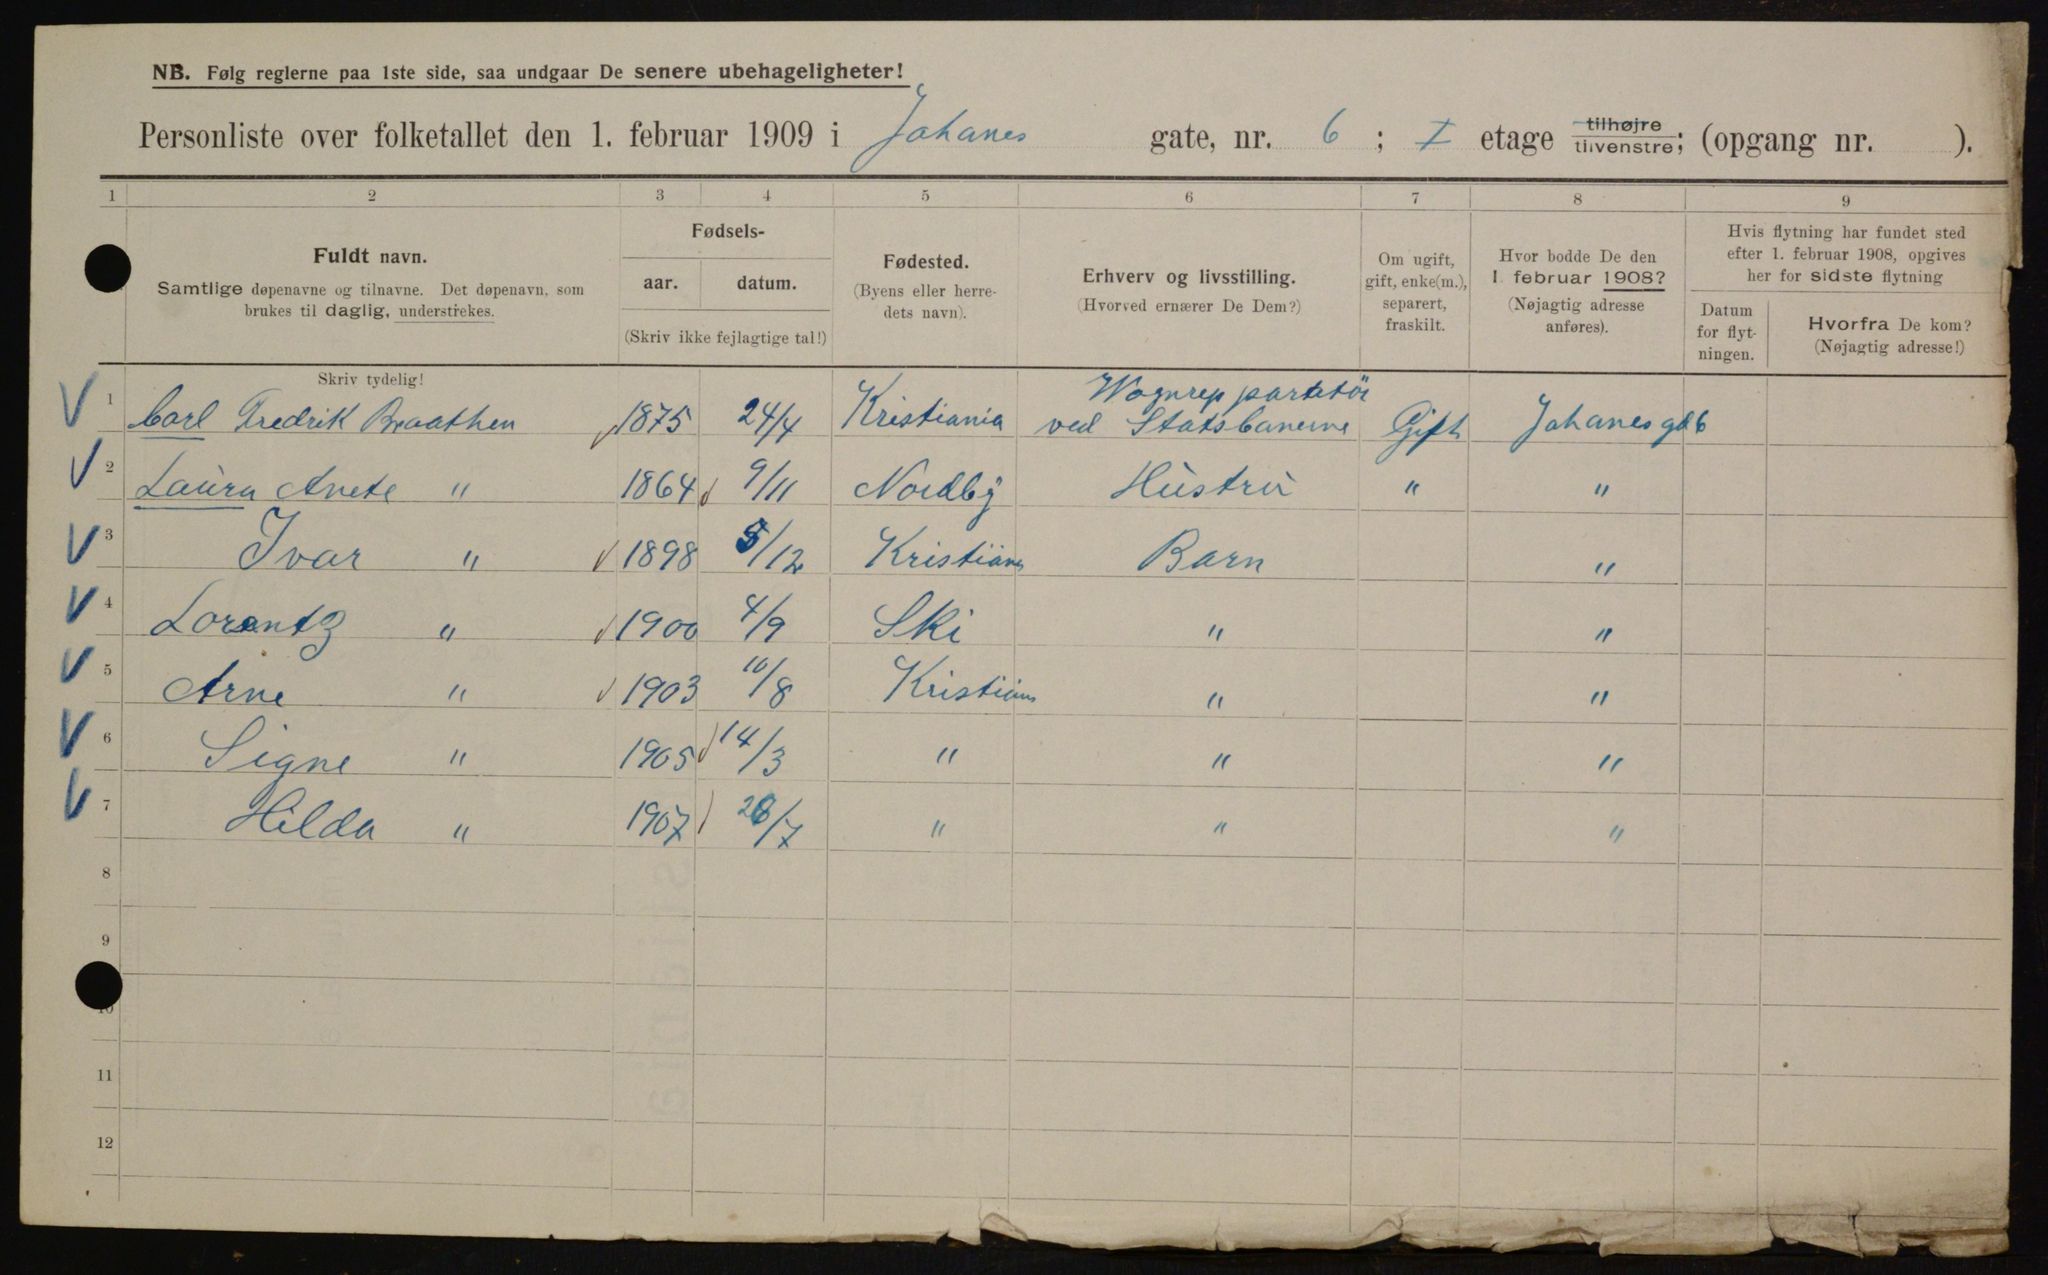 NB. Følg reglerne paa 1ste side, saa undgaar De senere ubehageligheter!
Personliste over folketallet den 1. februar 1909 i Johanes gate, nr. 6 ; I etage tilhøjre tilvenstre; (opgang nr. ).
1 2 3 4 5 6 7 8 9
Fuldt navn.
Samtlige døpenavne og tilnavne. Det døpenavn, som
brukes til daglig, understrekes.
Fødsels-
aar. datum.
(Skriv ikke fejlagtige tal!)
Fødested.
(Byens eller herre-
dets navn).
Erhverv og livsstilling.
(Hvorved ernærer De Dem?)
Om ugift,
gift, enke(m.),
separert,
fraskilt.
Hvor bodde De den
1. februar 1908?
(Nøjagtig adresse
anføres).
Hvis flytning har fundet sted
efter 1. februar 1908, opgives
her for sidste flytning
Datum
for flyt-
ningen.
Hvorfra De kom?
(Nøjagtig adresse!)
Skriv tydelig!
V 1 Carl Fredrik Braathen 1875 24/4 Kristiania Wognreppartatör ved Statsbanerne Gift Johanes gd 6
V 2 Laura Anete " 1864 9/11 Nordby Hustru " "
V 3 Ivar " 1898 5/12 Kristiania Barn "
V 4 Lorentz " 1900 4/9 Ski " "
V 5 Arne " 1903 10/8 Kristiania " "
V 6 Signe " 1905 14/3 " " "
V 7 Hilda " 1907 /7 " " "
8
9
10
11
12